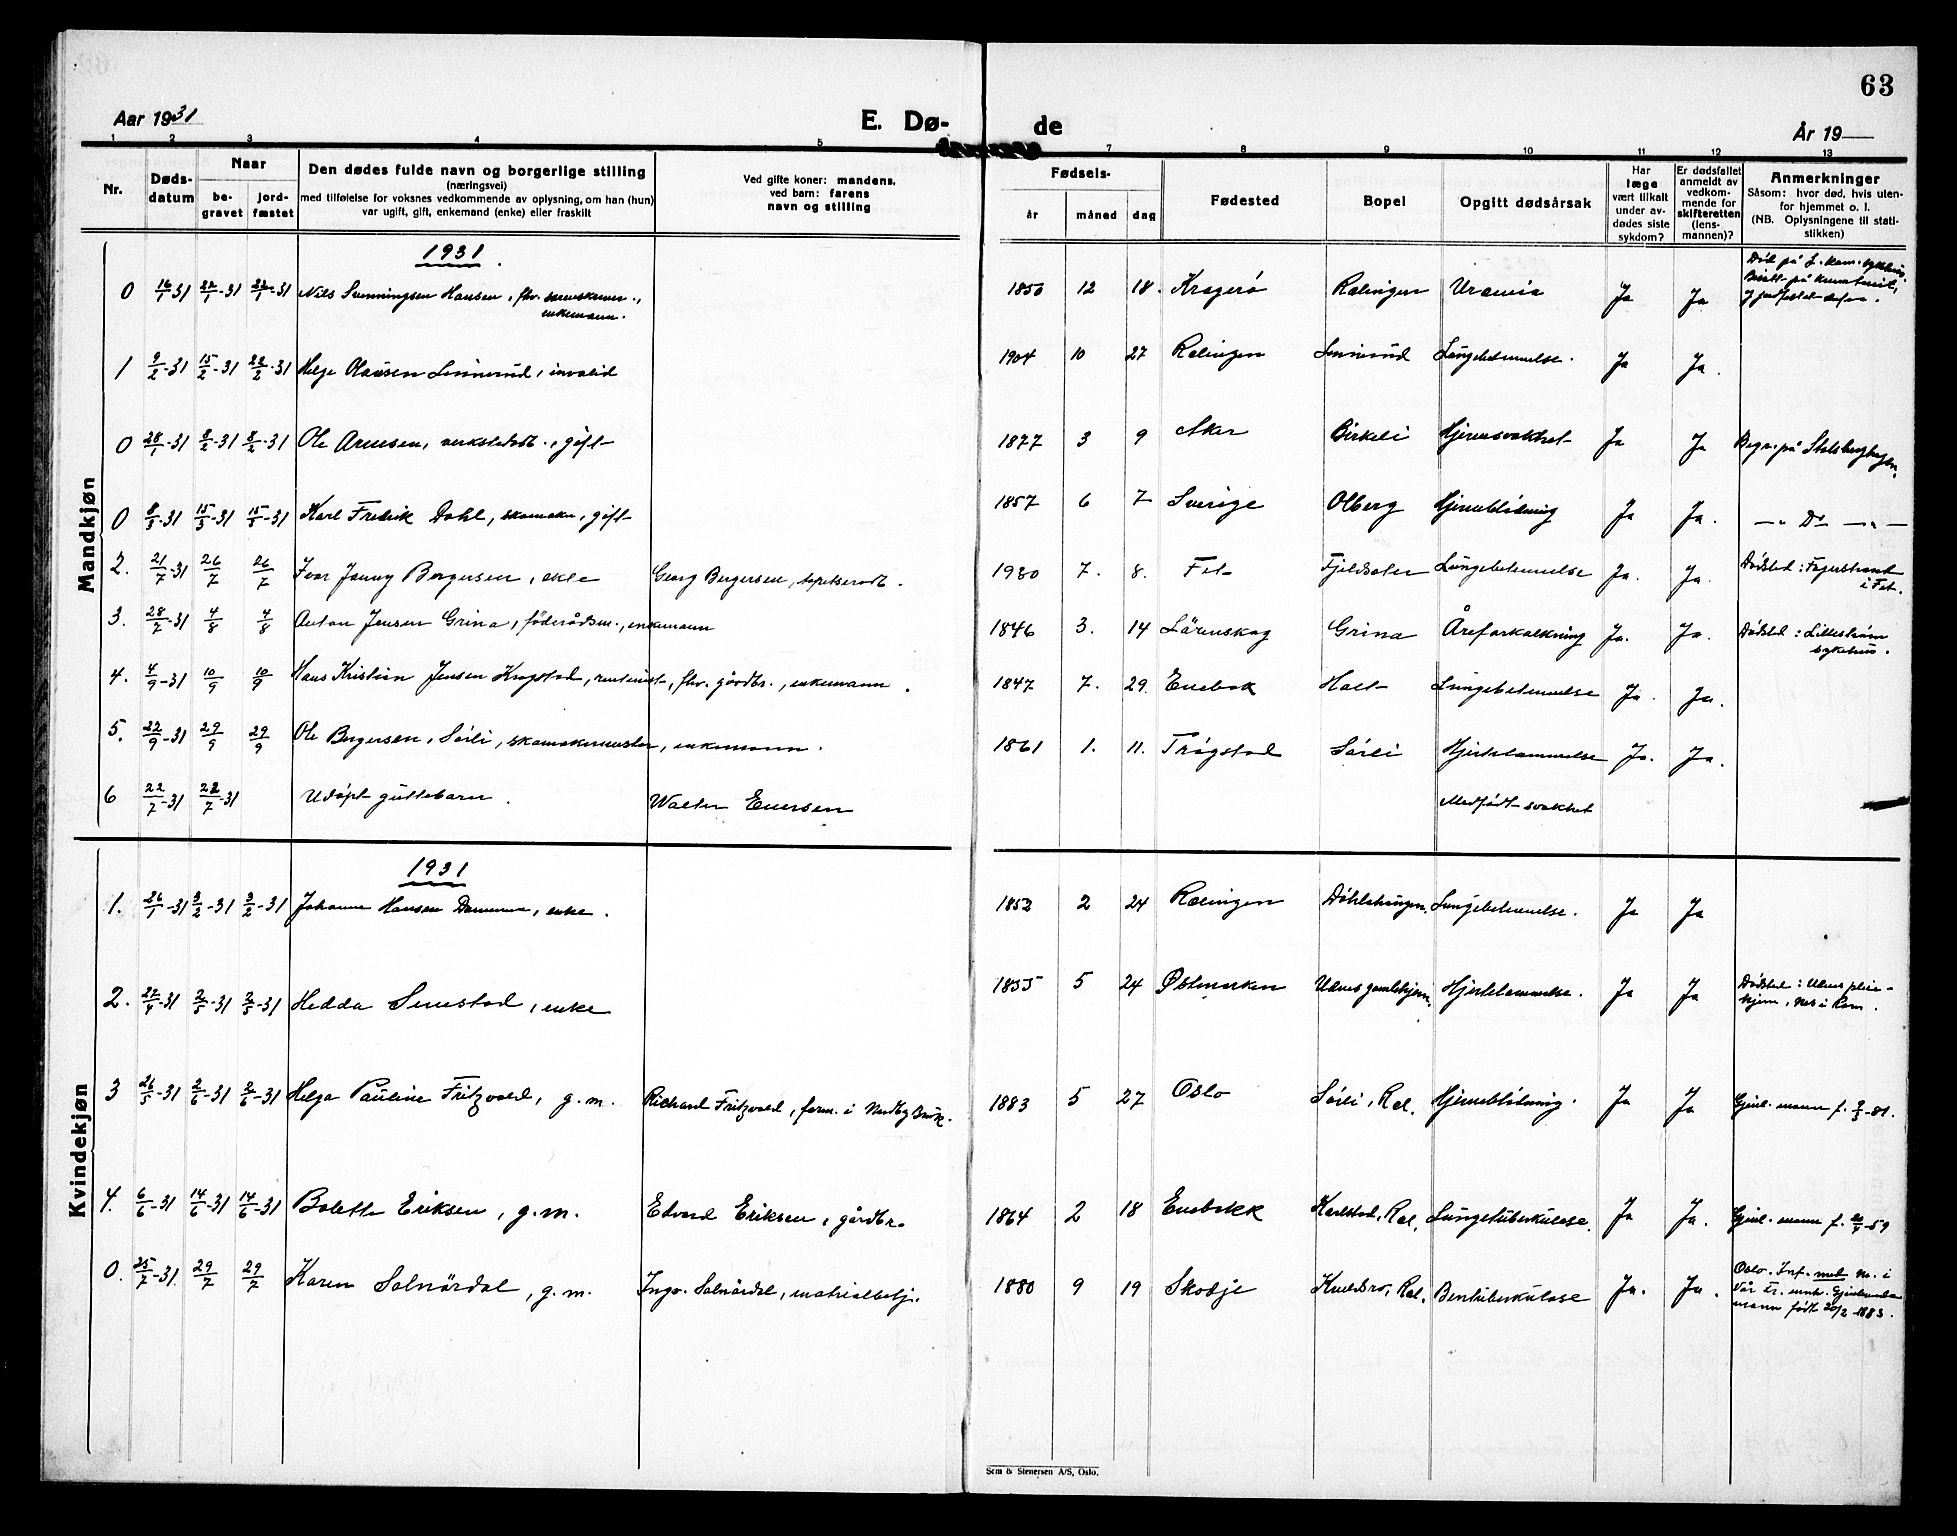 63
Aar 1931
E. Dø-
de
År 19
1 2 3 4 5 7 8 9 10 11 12 13
Nr.
Døds-
datum
Naar
be-
gravet
jord-
fæstet
Den dødes fulde navn og borgerlige stilling
(næringsvei)
med tilføielse for voksnes vedkommende av oplysning, om han (hun)
var ugift, gift, enkemand (enke) eller fraskilt
Ved gifte koner: mandens,
ved barn: farens
navn og stilling
Fødsels-
år måned dag
Fødested
Bopel
Opgitt dødsårsak
Har
læge
vært tilkalt
under av-
dødes siste
sykdom?
Er dødsfallet
anmeldt av
vedkom-
mende for
skifteretten
(lens-
mannen)?
Anmerkninger
Såsom: hvor død, hvis uten-
for hjemmet o. l.
(NB. Oplysningene til stati-
stikken)
Mandkjøn
1931
0 16/1-31 22/1-31 22/1-31 Nils Svenningsen Hansen, fhv. enkemann. 1850 12 18. Kragerø Rælingen Uræmia Ja Ja
1 9/2-31 15/2-31 22/2-31 Helge Olausen Sinnerud, invalid 1904 10 27 Rælingen Sinnerud Lungebetennelse. Ja Ja.
0 28/1-31 8/2-31 8/2-31 Ole Arnesen, verkstedarb., gift 1877 3 9 Aker Birkeli Hjertesvakhet Ja Ja Begr. på
0 8/3-31 15/3-31 15/3-31 Karl Fredrik Dahl, skomaker, gift 1857 6 7 Sverige Olberg Hjerneblødning Ja Ja. —„ Do —„—
2. 21/7-31 26/7 26/7 Ivar Jonny Bergersen, ekte Georg Bergersen, tapetserarb. 1930 7. 8. Fet Fjeldsæter Lungebetennelse Ja. Ja. Dødsted: Fagerstrand
i Fet.
3. 28/7-31 4/8 4/8 Anton Jensen Grina, föderådsm., enkemann 1846 3. 14 Lörenskog Grina Åreforkalkning Ja. Ja. Dødsted: Lillestrøm
sykehus.
4. 4/9-31 10/9 10/9 Hans Kristian Jensen Kogstad, rentenist, fhv. gårdbr., enkemann. 1847 7. 29. Enebak Holt Lungebetennelse Ja. Ja.
5. 22/9-31 29/9 29/9 Ole Bergersen, Sørli, skomakermester, enkemann. 1861 1. 11. Trøgstad Sørli Hjertelammelse Ja. Ja.
6 22/7-31 28/7-31 Udøpt guttebarn. Walter Enersen Medfødt svakhet
Kvindekjøn
1931
1. 26/1-31 3/2-31 3/2-31 Johanne Hansen, enke. 1852 2 24 Rælingen Lungebetennelse. Ja Ja
2. 27/4-31 2/5-31 2/5-31 Hedda Senstad, enke 1855 5 24 Østmarken Udnes gamlehjem. Hjertelammelse. Ja Ja Dødsted: Udnes pleie-
hjem, Nes i Rom.
3 26/5-31 2/6-31 2/6-31 Helga Pauline Fritzvold, g.m. Richard Fritzvold, form. i Nordby Bruk. 1883 5 27 Oslo Sørli, Ræl. Hjerneblødning. Ja Ja Gjenl. mann f. 9/3-81.
4. 6/6-31 14/6-31 14/6-31 Bolette Eriksen, g.m. Edvard Eriksen, gårdbr. 1864 2 18 Enebakk Karlstad, Ræl. Lungetuberkulose. Ja Ja. Gjenl. mann f. 20/4-59
0. 25/7-31. 29/7 29/7 Karen Solnördal, g.m. Ingv. Solnördal, matrialbetj. 1880 9 19 Skodje Ræl. Bentuberkulose Ja. Ja. Oslo. Inf. med no. i
Vår Fr. menh. Gjenlevende
mann født 20/2 1883.
Sem & Stenersen A/S, Oslo.